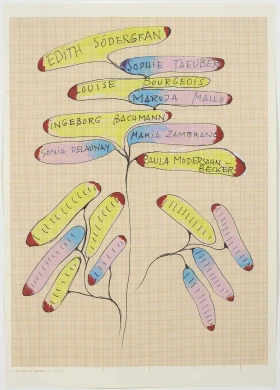 EDITH SÖDERGRAN
SOPHIE TAEUBER
LOUISE BOURGEOIS
MARUJA MALLO
INGEBORG BACHMANN
MARIA ZAMBRANO
SONIA DELAUNAY
PAULA MODERSOHN-
BECKER